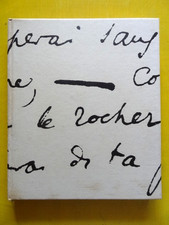 perai sans
e, — Co
le rocher
rai di ta